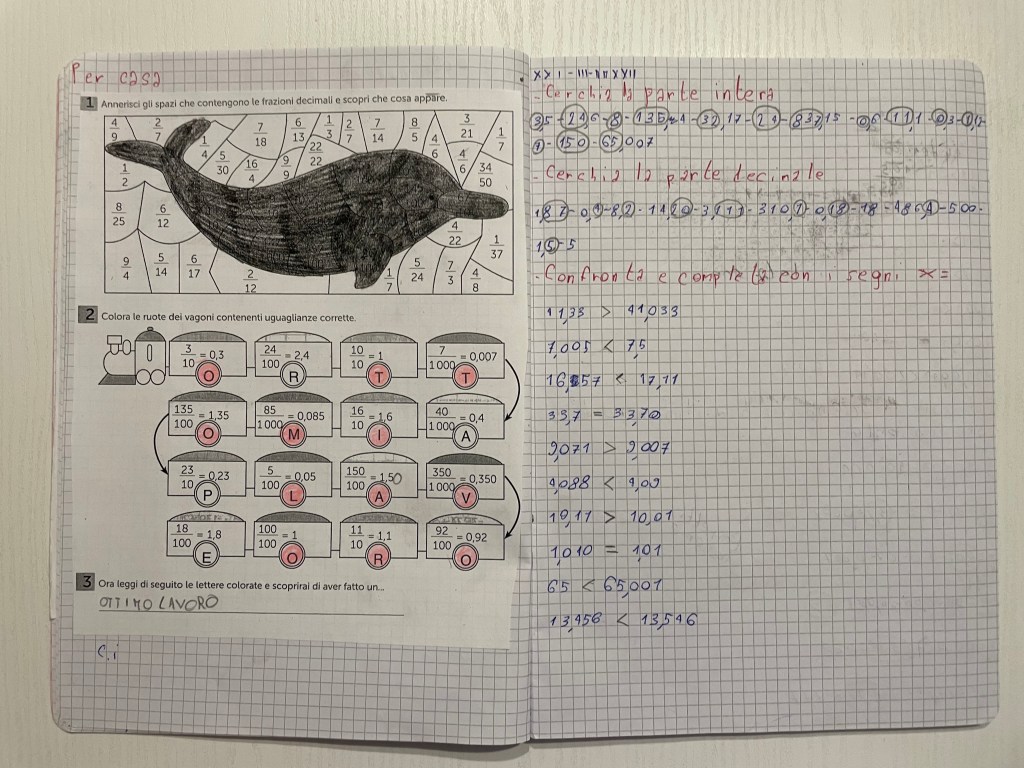 Per casa
1 Annerisci gli spazi che contengono le frazioni decimali e scopri che cosa appare.
4/9 2/7 7/18 6/13 1/3 2/7 7/14 8/5 3/21 1/7
1/4 5/30 16/4 9/9 22/22 4/6 4/6 34/50
1/2
8/25 6/12 4/22 1/37
9/4 5/14 6/17 2/12 1/7 5/24 7/3 4/8
2 Colora le ruote dei vagoni contenenti uguaglianze corrette.
3/10 = 0,3 24/100 = 2,4 10/10 = 1 7/1000 = 0,007
O R T T
135/100 = 1,35 85/1000 = 0,085 16/10 = 1,6 40/1000 = 0,4
O M I A
23/10 = 0,23 5/100 = 0,05 150/100 = 1,50 350/1000 = 0,350
P L A V
18/100 = 1,8 100/100 = 1 11/10 = 1,1 92/100 = 0,92
E O R O
3 Ora leggi di seguito le lettere colorate e scoprirai di aver fatto un...
OTTIMO LAVORO
C.i
- Cerchia la parte intera
- 150 - 65,007
- Cerchia la parte decimale
1,5 - 5
- Confronta e completa con i segni
11,33 > 11,033
7,005 < 7,5
17,11
33,7 = 3370
9,071 > 9,007
9,088 < 9,09
10,11 > 10,01
1,010 = 1,01
65 < 65,001
13,456 < 13,546